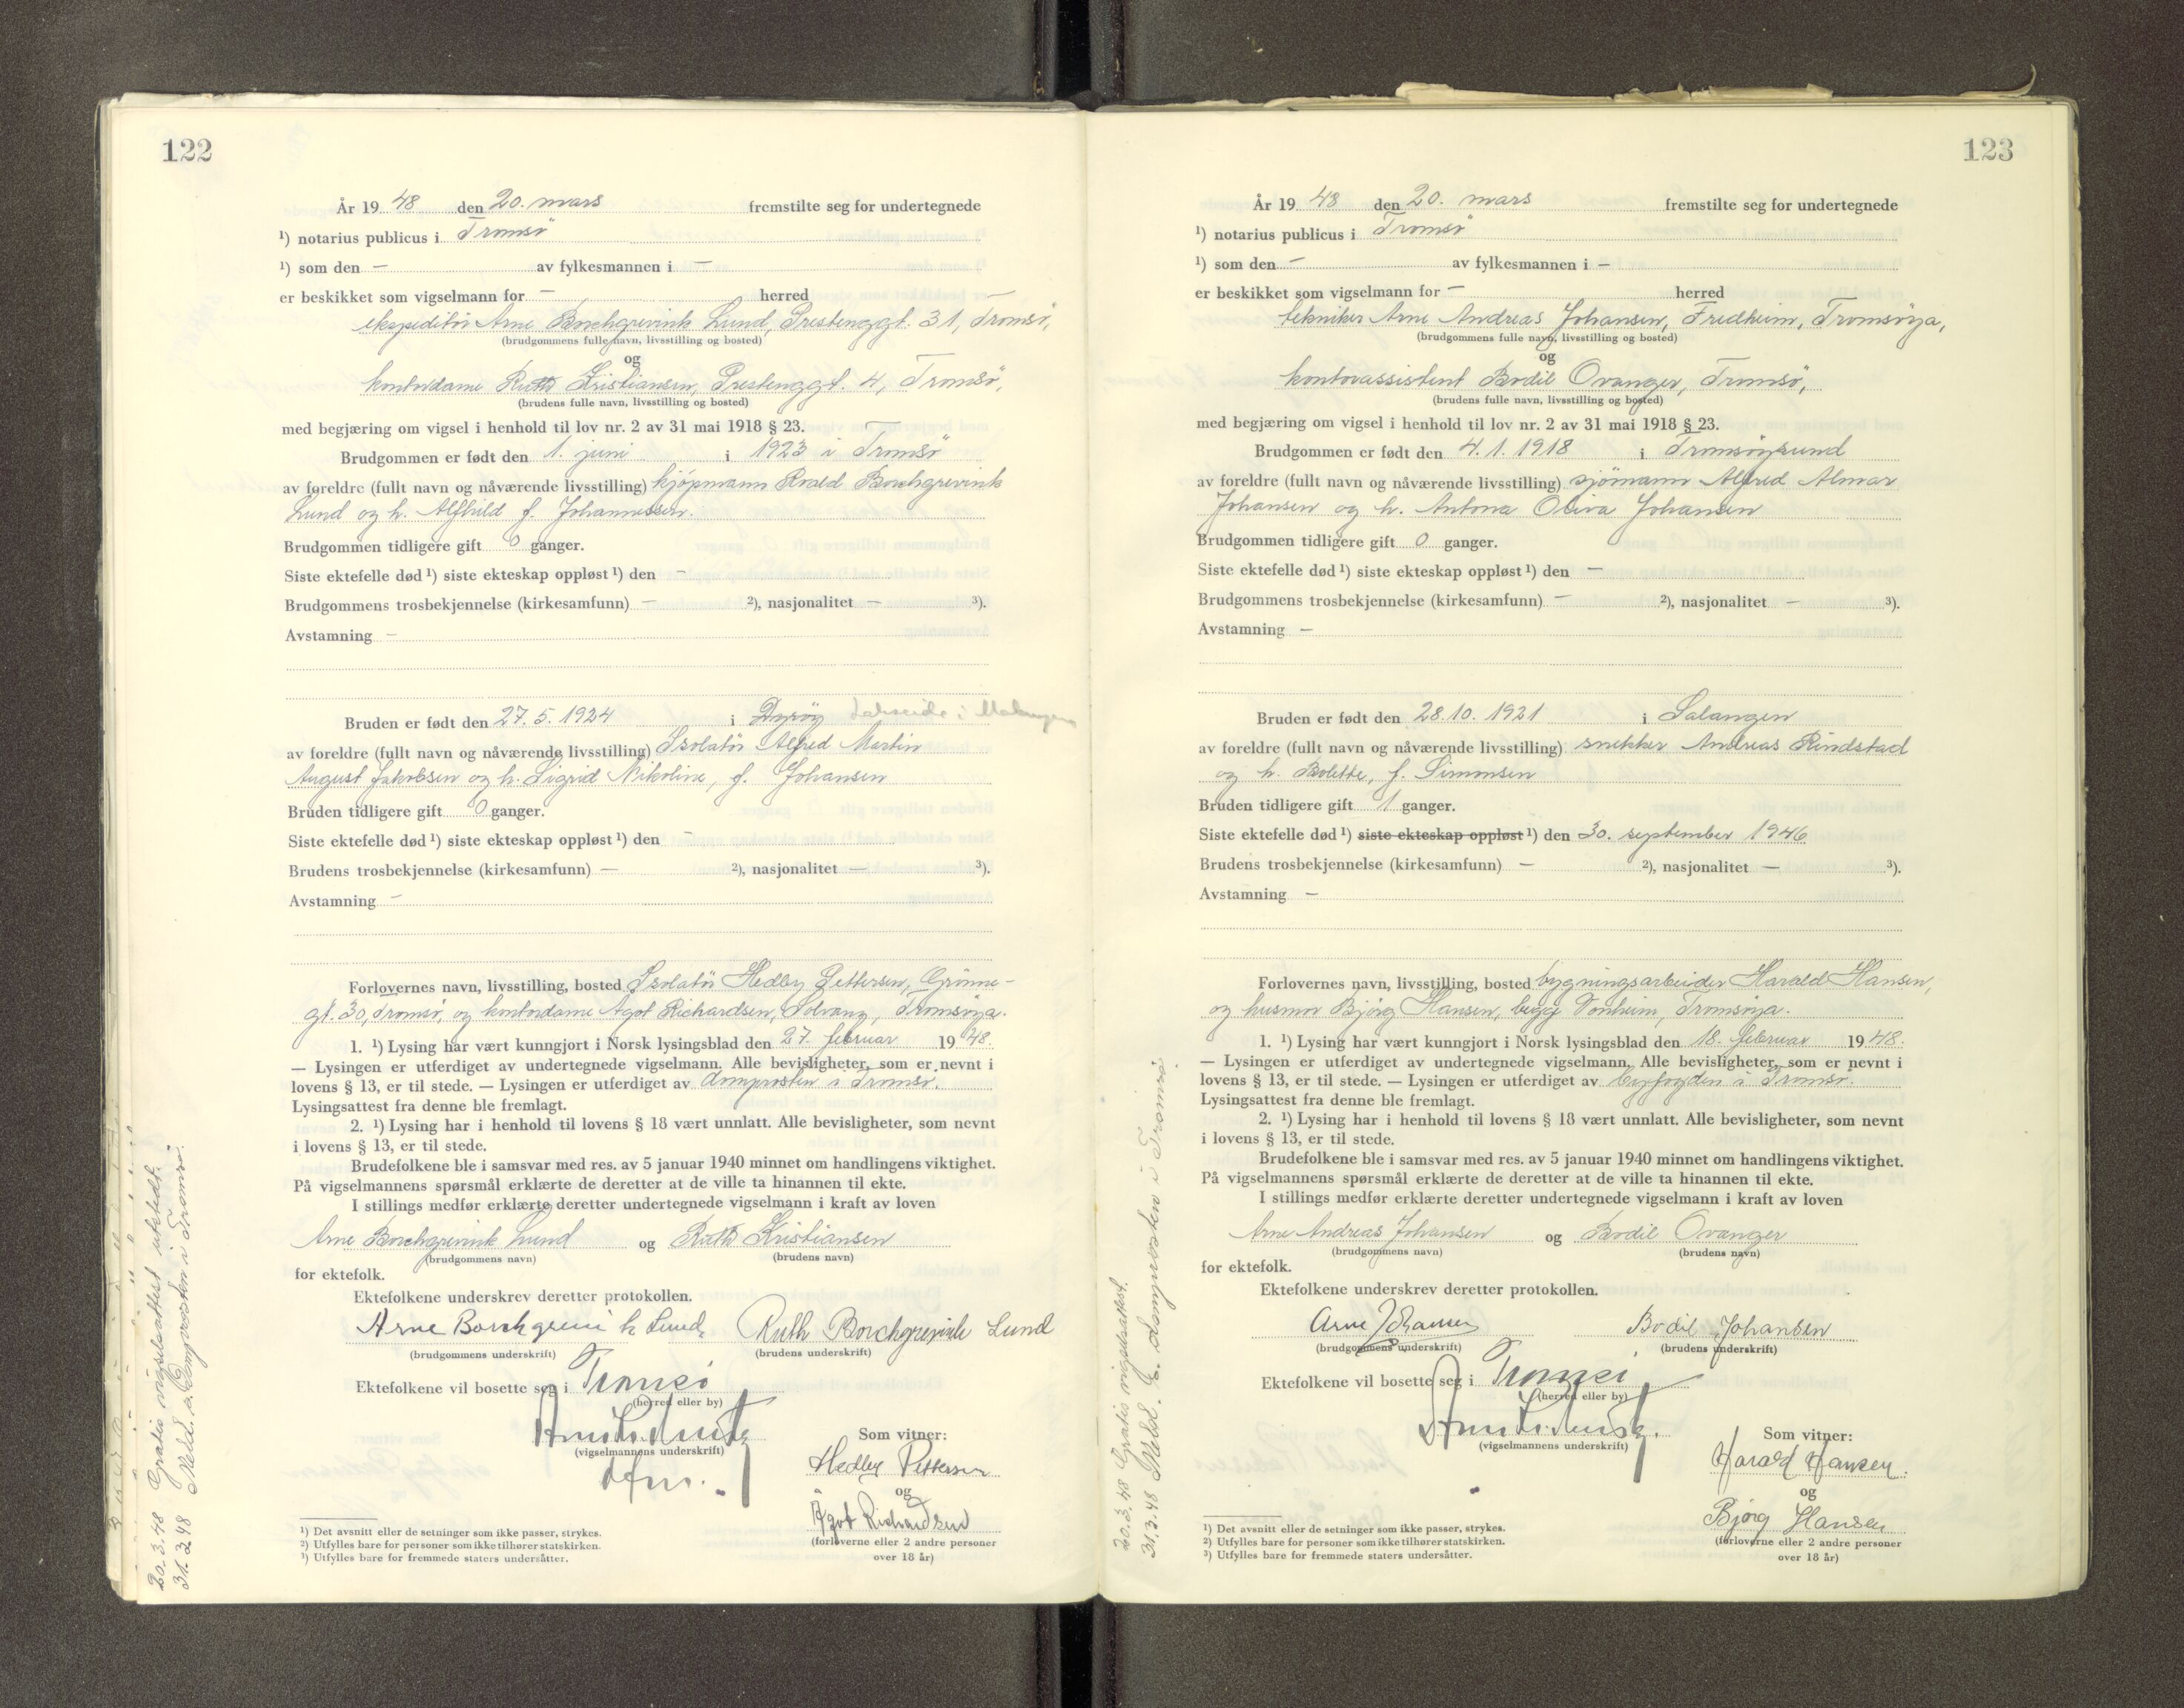 122
År 19 48 den 20. mars fremstilte seg for undertegnede
¹) notarius publicus i Tromsö
¹) som den — av fylkesmannen i —
er beskikket som vigselmann for — herred
ekspeditör Arne Borchgrevink Lund, Prestenggt. 31, Tromsö,
(brudgommens fulle navn, livsstilling og bosted)
og
kontordame Ruth Kristiansen, Prestenggt. 4, Tromsö,
(brudens fulle navn, livsstilling og bosted)
med begjæring om vigsel i henhold til lov nr. 2 av 31 mai 1918 § 23.
Brudgommen er født den 1. juni i 1923 i Tromsö
av foreldre (fullt navn og nåværende livsstilling) kjöpmann Roald Borchgrevink
Lund og h. Alfhild f. Johannessen.
Brudgommen tidligere gift 0 ganger.
Siste ektefelle død ¹) siste ekteskap oppløst ¹) den —
Brudgommens trosbekjennelse (kirkesamfunn) — ²), nasjonalitet — ³).
Avstamning —
Bruden er født den 27. 5. 1924 i Dyröy i Malangen
av foreldre (fullt navn og nåværende livsstilling) Isolatör Alfred Martin
August Jakobsen og h. Sigrid Nikoline, f. Johansen
Bruden tidligere gift 0 ganger.
Siste ektefelle død ¹) siste ekteskap oppløst ¹) den —
Brudens trosbekjennelse (kirkesamfunn) — ²), nasjonalitet — ³).
Avstamning —
Forlovernes navn, livsstilling, bosted Isolatör Hedley Pettersen, Grönne-
gt. 30, Tromsö, og kontordame Agot Richardsen, Solvang, Tromsöya.
1. ¹) Lysing har vært kunngjort i Norsk lysingsblad den 27. februar 19 48.
— Lysingen er utferdiget av undertegnede vigselmann. Alle bevisligheter, som er nevnt i
lovens § 13, er til stede. — Lysingen er utferdiget av domprosten i Tromsö.
Lysingsattest fra denne ble fremlagt.
2. ¹) Lysing har i henhold til lovens § 18 vært unnlatt. Alle bevisligheter, som nevnt
i lovens § 13, er til stede.
Brudefolkene ble i samsvar med res. av 5 januar 1940 minnet om handlingens viktighet.
På vigselmannens spørsmål erklærte de deretter at de ville ta hinannen til ekte.
I stillings medfør erklærte deretter undertegnede vigselmann i kraft av loven
Arne Borchgrevink Lund og Ruth Kristiansen
(brudgommens navn) (brudens navn)
for ektefolk.
Ektefolkene underskrev deretter protokollen.
Arne Borchgrevink Lund Ruth Borchgrevink Lund
(brudgommens underskrift) (brudens underskrift)
Ektefolkene vil bosette seg i Tromsö
(herred eller by)
(vigselmannens underskrift)
Som vitner:
Hedley Pettersen
og
Agot Richardsen
(forloverne eller 2 andre personer
over 18 år)
¹) Det avsnitt eller de setninger som ikke passer, strykes.
²) Utfylles bare for personer som ikke tilhører statskirken.
³) Utfylles bare for fremmede staters undersåtter.
20.3.48 Gratis vigselsattest utstedt.
31.3.48 Meld. t. Domprosten i Tromsö.
123
År 19 48 den 20. mars fremstilte seg for undertegnede
¹) notarius publicus i Tromsö
¹) som den — av fylkesmannen i —
er beskikket som vigselmann for — herred
tekniker Arne Andreas Johansen, Fredheim, Tromsöya,
(brudgommens fulle navn, livsstilling og bosted)
og
kontorassistent Bodil Ovanger, Tromsö,
(brudens fulle navn, livsstilling og bosted)
med begjæring om vigsel i henhold til lov nr. 2 av 31 mai 1918 § 23.
Brudgommen er født den 4. 1. 1918 i Tromsöysund
av foreldre (fullt navn og nåværende livsstilling) sjömann Alfred Almar
Johansen og h. Antona Oliva Johansen
Brudgommen tidligere gift 0 ganger.
Siste ektefelle død ¹) siste ekteskap oppløst ¹) den —
Brudgommens trosbekjennelse (kirkesamfunn) — ²), nasjonalitet — ³).
Avstamning —
Bruden er født den 28. 10. 1921 i Salangen
av foreldre (fullt navn og nåværende livsstilling) snekker Andreas Rindstad
og h. Bolette, f. Simonsen
Bruden tidligere gift 1 ganger.
Siste ektefelle død ¹) siste ekteskap oppløst ¹) den 30. september 1946
Brudens trosbekjennelse (kirkesamfunn) — ²), nasjonalitet — ³).
Avstamning —
Forlovernes navn, livsstilling, bosted bygningsarbeider Harald Hansen,
og husmor Bjørg Hansen, begge Tonheim, Tromsöya.
1. ¹) Lysing har vært kunngjort i Norsk lysingsblad den 18. februar 19 48.
— Lysingen er utferdiget av undertegnede vigselmann. Alle bevisligheter, som er nevnt i
lovens § 13, er til stede. — Lysingen er utferdiget av byfogden i Tromsö.
Lysingsattest fra denne ble fremlagt.
2. ¹) Lysing har i henhold til lovens § 18 vært unnlatt. Alle bevisligheter, som nevnt
i lovens § 13, er til stede.
Brudefolkene ble i samsvar med res. av 5 januar 1940 minnet om handlingens viktighet.
På vigselmannens spørsmål erklærte de deretter at de ville ta hinannen til ekte.
I stillings medfør erklærte deretter undertegnede vigselmann i kraft av loven
Arne Andreas Johansen og Bodil Ovanger
(brudgommens navn) (brudens navn)
for ektefolk.
Ektefolkene underskrev deretter protokollen.
Arne Johansen Bodil Johansen
(brudgommens underskrift) (brudens underskrift)
Ektefolkene vil bosette seg i Tromsö
(herred eller by)
(vigselmannens underskrift)
Som vitner:
Harald Hansen.
og
Bjørg Hansen
(forloverne eller 2 andre personer
over 18 år)
¹) Det avsnitt eller de setninger som ikke passer, strykes.
²) Utfylles bare for personer som ikke tilhører statskirken.
³) Utfylles bare for fremmede staters undersåtter.
20.3.48 Gratis vigselsattest.
31.3.48 Meld. t. domprosten i Tromsö.